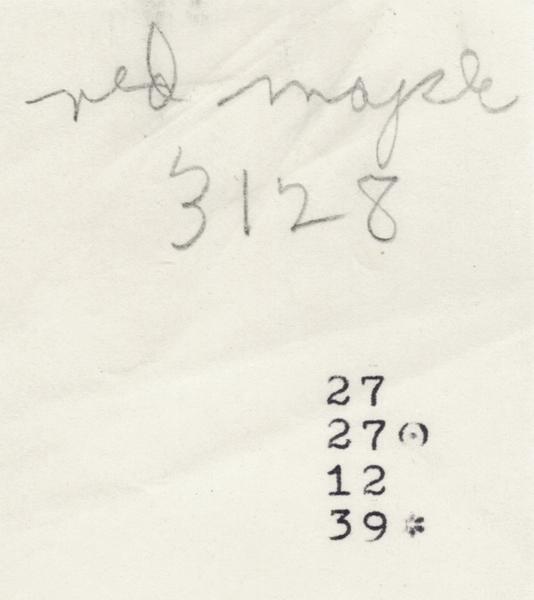 red maple
3128
27
27 ⊙
12
39 *